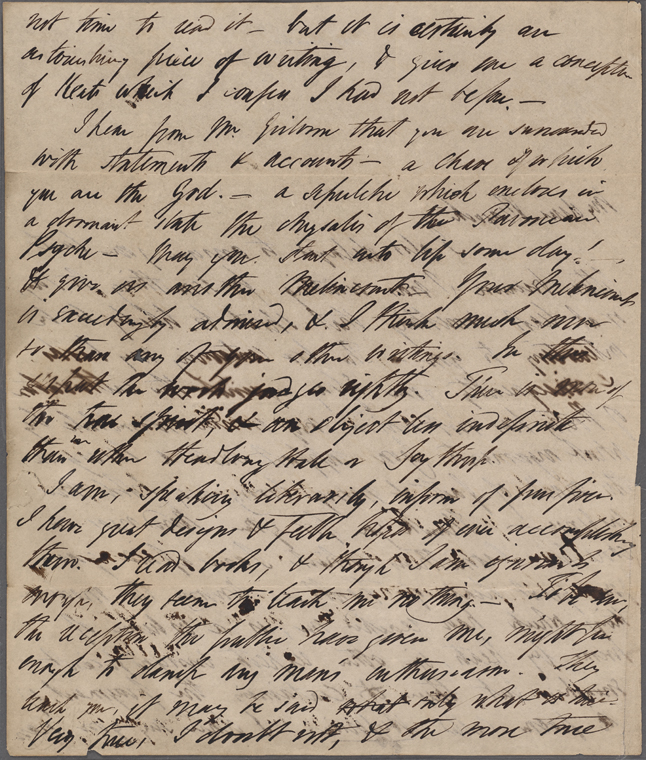 not time to read it – but it is certainly an
astonishing piece of writing, & gives me a conception
of Keats which I confess I had not before. —
I hear from Mr. Gisborne that you are surrounded
with statements & accounts – a chaos of which
you are the God. – a sepulchre which encloses in
a dormant state the chrysalis of the Pavonian
Psyche – May you start into life some day!
& give us another Melincourt. Your Melincourt
is exceedingly admired, & I think much more
so than any of your other writings. In this
the world judges rightly. There is more of
the true spirit, & an object less indefinite
than in either Headlong Hall or Scythrop
I am, speaking literarily, infirm of purpose.
I have great designs, & feeble hopes of ever accomplishing
them. I read books, & though I am ignorant
enough, they seem to teach me nothing – To be sure,
the reception the public have given me, might
enough to damp any mans enthusiasm. They
teach me, it may be said only what is true.
Very true, I doubt not, & the more true